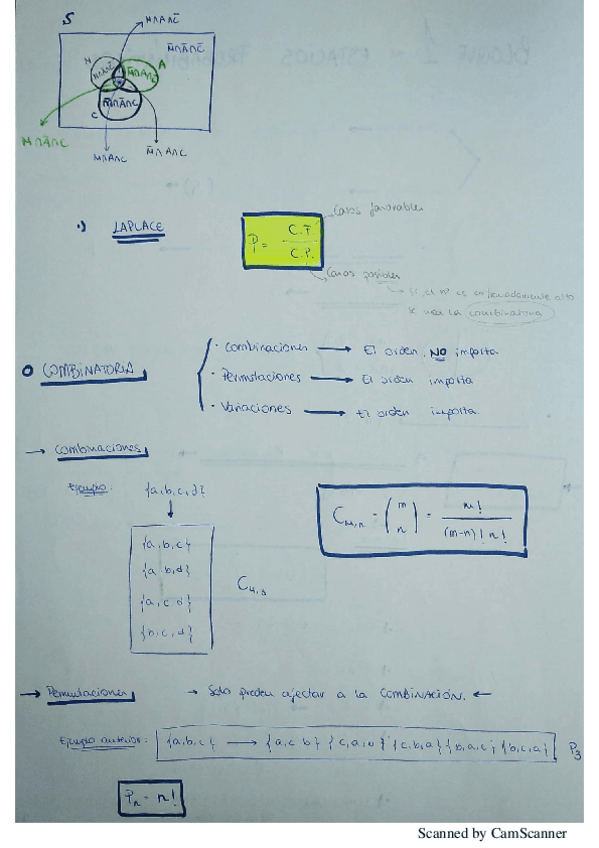 S
M∩A∩C̄
M̄∩Ā∩C̄
M
M∩Ā∩C̄
M̄∩A∩C̄
A
M̄∩Ā∩C
C
M∩Ā∩C
M∩A∩C
M̄∩A∩C
·) LAPLACE
P = C.F. / C.P.
Casos favorables
Casos posibles
→ si el nº es endemoniadamente alto
se usa la combinatoria
O COMBINATORIA
· Combinaciones → El orden NO importa
· Permutaciones → El orden importa
· Variaciones → El orden importa
→ Combinaciones
Ejemplo: {a,b,c,d}
{a,b,c}
{a,b,d}
{a,c,d}
{b,c,d}
C4,3
Cm,n = (m n) = m! / (m-n)! n!
→ Permutaciones → Solo pueden afectar a la COMBINACIÓN. ←
Ejemplo anterior: {a,b,c} → {a,c,b} {c,a,b} {c,b,a} {b,a,c} {b,c,a} P3
Pn = n!
Scanned by CamScanner